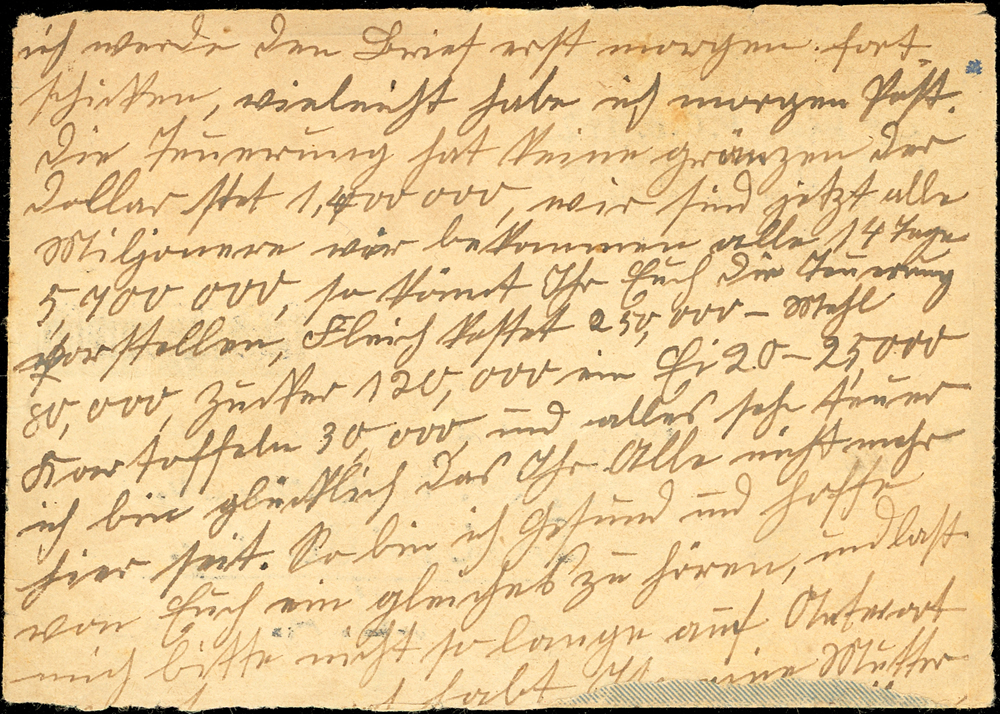 ich werde den Brief erst morgen fort
schicken, vieleicht habe ich morgen Post.
Die Teuerung hat keine gränzen der
Dollar stet 1,400 000, wir sind jetzt alle
Miljonere wir bekommen alle 14 Tage
5,700 000, so könnt Ihr Euch die Teuerung
vorstellen, Fleich kostet 250,000 – Mehl
80,000, Zucker 120,000 ein Ei 20 – 25,000
Kartoffeln 30,000, und alles sehr teuer
ich bin glücklich das Ihr Alle nicht mehr
hier seit. So bin ich Gesund und hoffe
von Euch ein gleiches zu hören, und last
mich bitte nicht so lange auf Antwort
habt eine Mutter